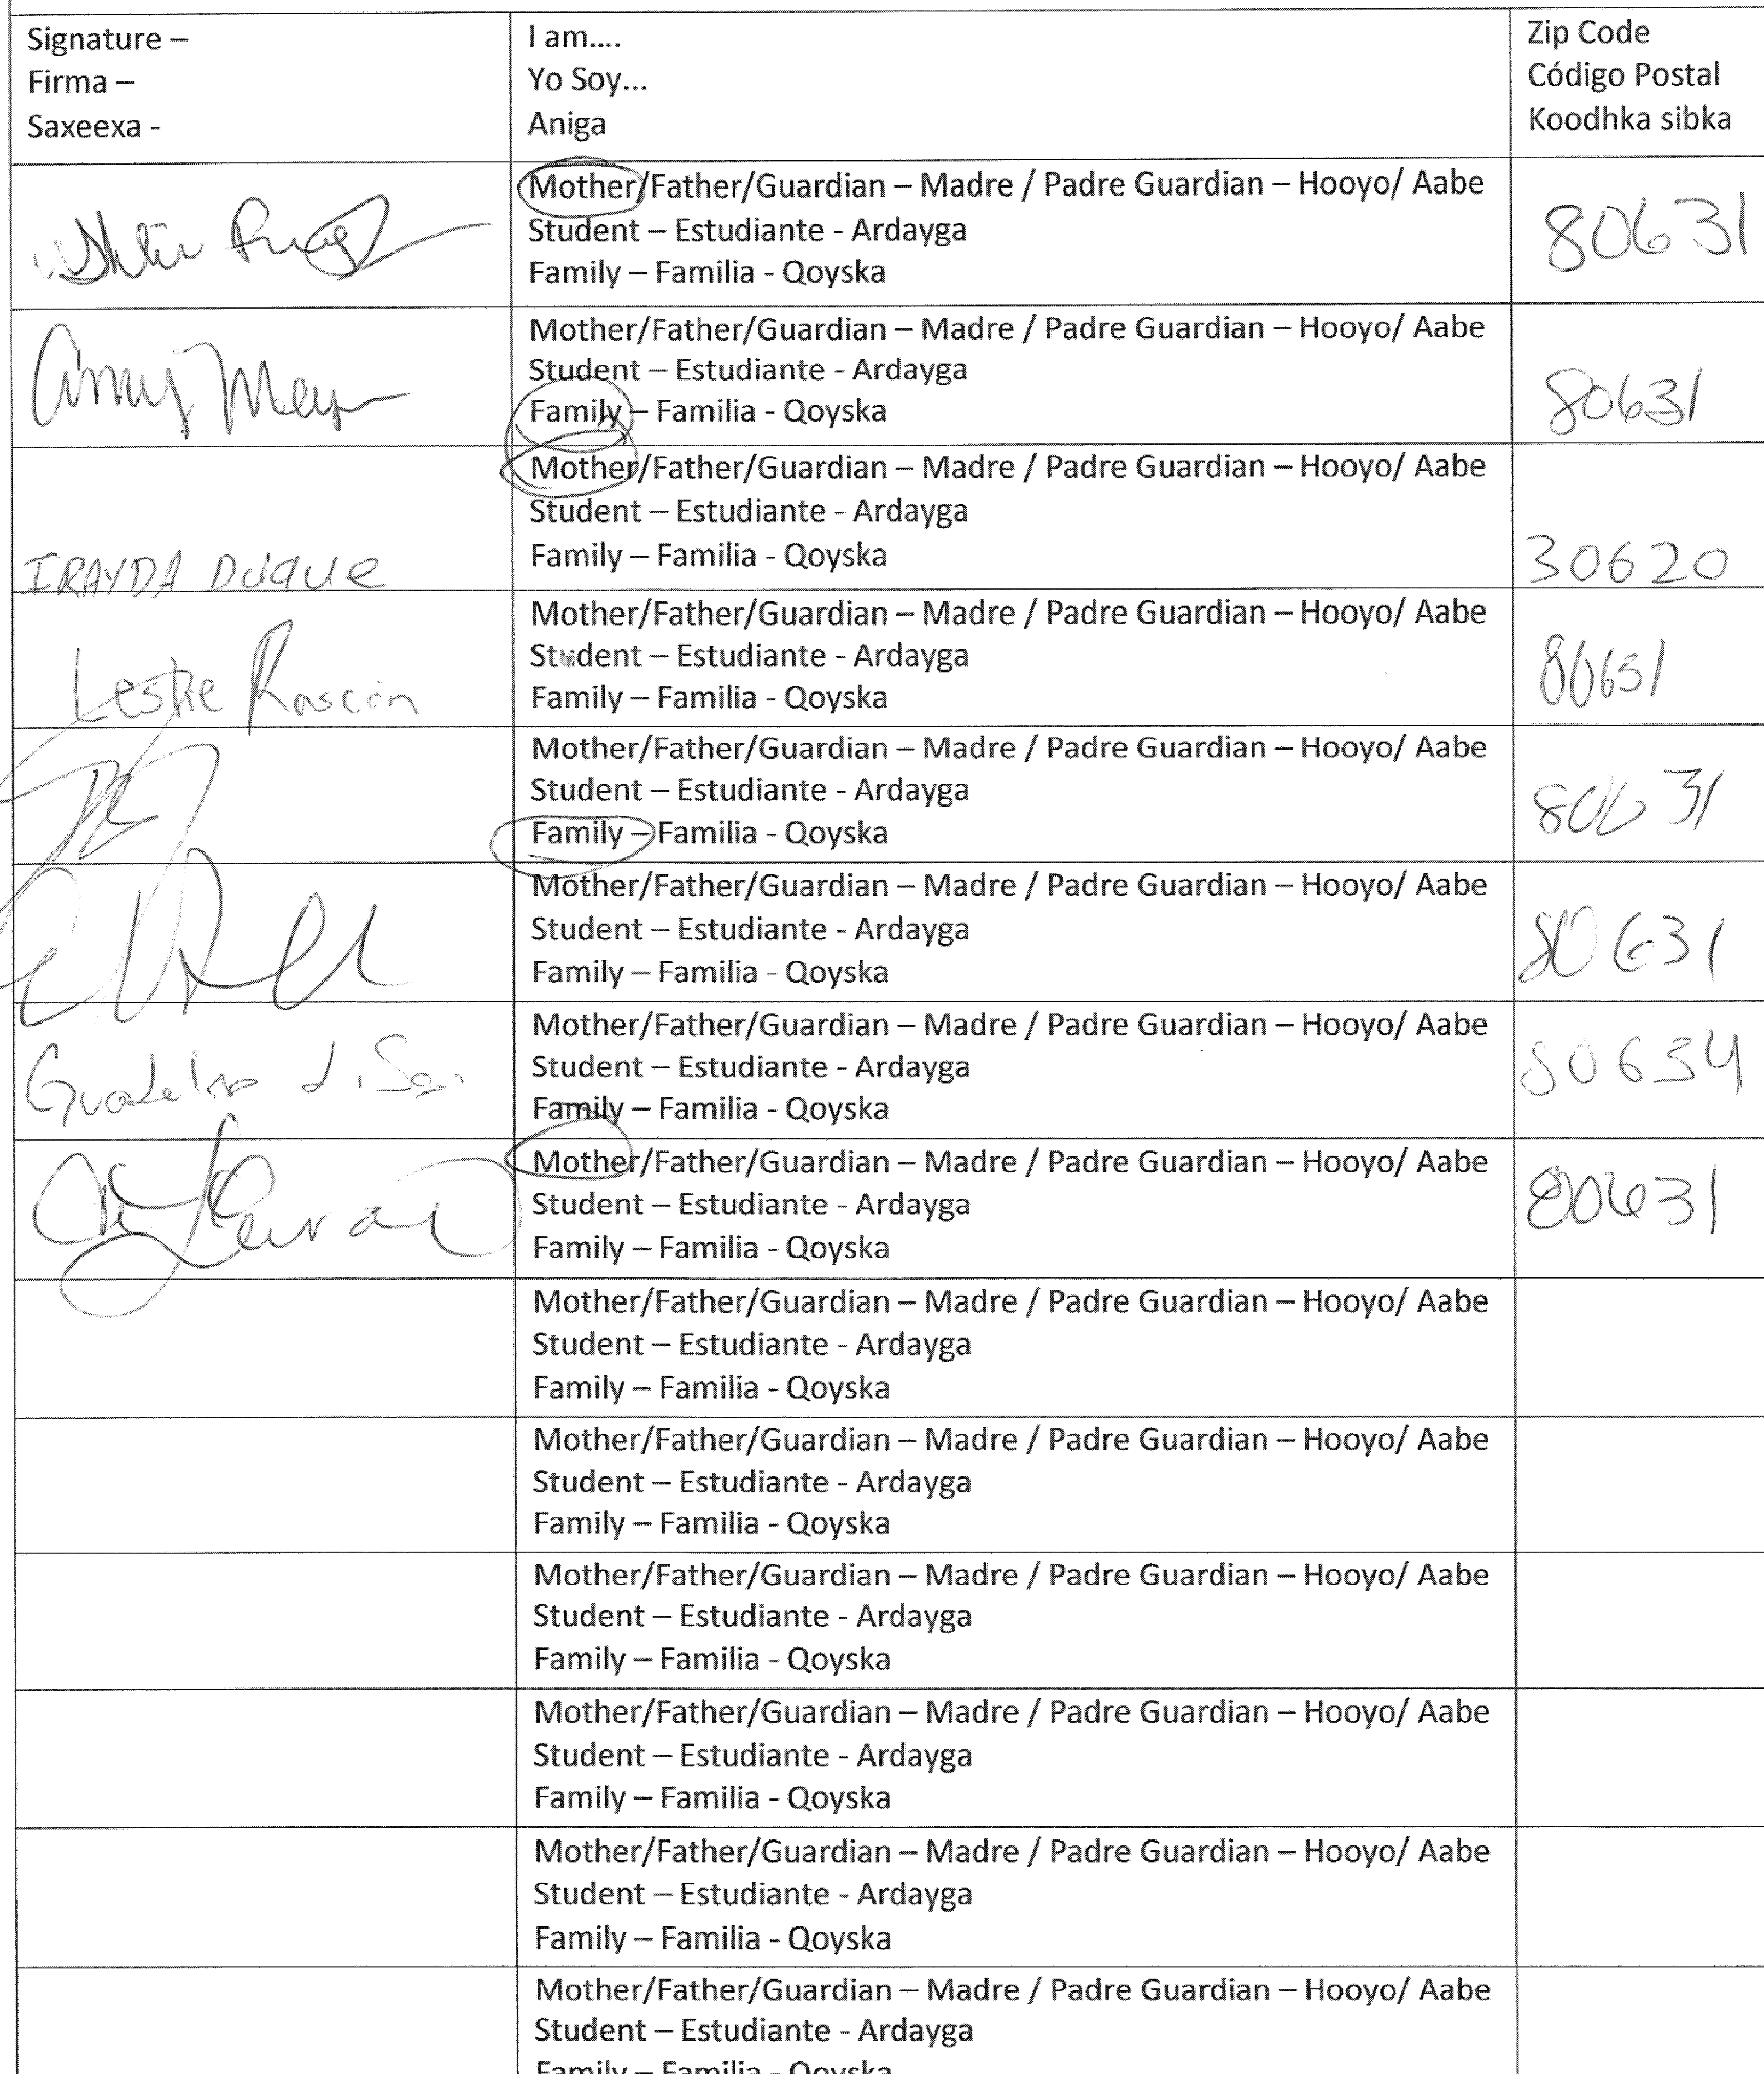 Signature –
Firma –
Saxeexa -
I am....
Yo Soy...
Aniga
Zip Code
Código Postal
Koodhka sibka
Mother/Father/Guardian – Madre / Padre Guardian – Hooyo/ Aabe
Student – Estudiante - Ardayga
Family – Familia - Qoyska
80631
Amy
Mother/Father/Guardian – Madre / Padre Guardian – Hooyo/ Aabe
Student – Estudiante - Ardayga
Family – Familia - Qoyska
80631
IRAYDA Duque
Mother/Father/Guardian – Madre / Padre Guardian – Hooyo/ Aabe
Student – Estudiante - Ardayga
Family – Familia - Qoyska
30620
Leslie Rascon
Mother/Father/Guardian – Madre / Padre Guardian – Hooyo/ Aabe
Student – Estudiante - Ardayga
Family – Familia - Qoyska
80631
Mother/Father/Guardian – Madre / Padre Guardian – Hooyo/ Aabe
Student – Estudiante - Ardayga
Family – Familia - Qoyska
80631
Mother/Father/Guardian – Madre / Padre Guardian – Hooyo/ Aabe
Student – Estudiante - Ardayga
Family – Familia - Qoyska
80631
Mother/Father/Guardian – Madre / Padre Guardian – Hooyo/ Aabe
Student – Estudiante - Ardayga
Family – Familia - Qoyska
80634
Mother/Father/Guardian – Madre / Padre Guardian – Hooyo/ Aabe
Student – Estudiante - Ardayga
Family – Familia - Qoyska
80631
Mother/Father/Guardian – Madre / Padre Guardian – Hooyo/ Aabe
Student – Estudiante - Ardayga
Family – Familia - Qoyska
Mother/Father/Guardian – Madre / Padre Guardian – Hooyo/ Aabe
Student – Estudiante - Ardayga
Family – Familia - Qoyska
Mother/Father/Guardian – Madre / Padre Guardian – Hooyo/ Aabe
Student – Estudiante - Ardayga
Family – Familia - Qoyska
Mother/Father/Guardian – Madre / Padre Guardian – Hooyo/ Aabe
Student – Estudiante - Ardayga
Family – Familia - Qoyska
Mother/Father/Guardian – Madre / Padre Guardian – Hooyo/ Aabe
Student – Estudiante - Ardayga
Family – Familia - Qoyska
Mother/Father/Guardian – Madre / Padre Guardian – Hooyo/ Aabe
Student – Estudiante - Ardayga
Family – Familia - Qoyska